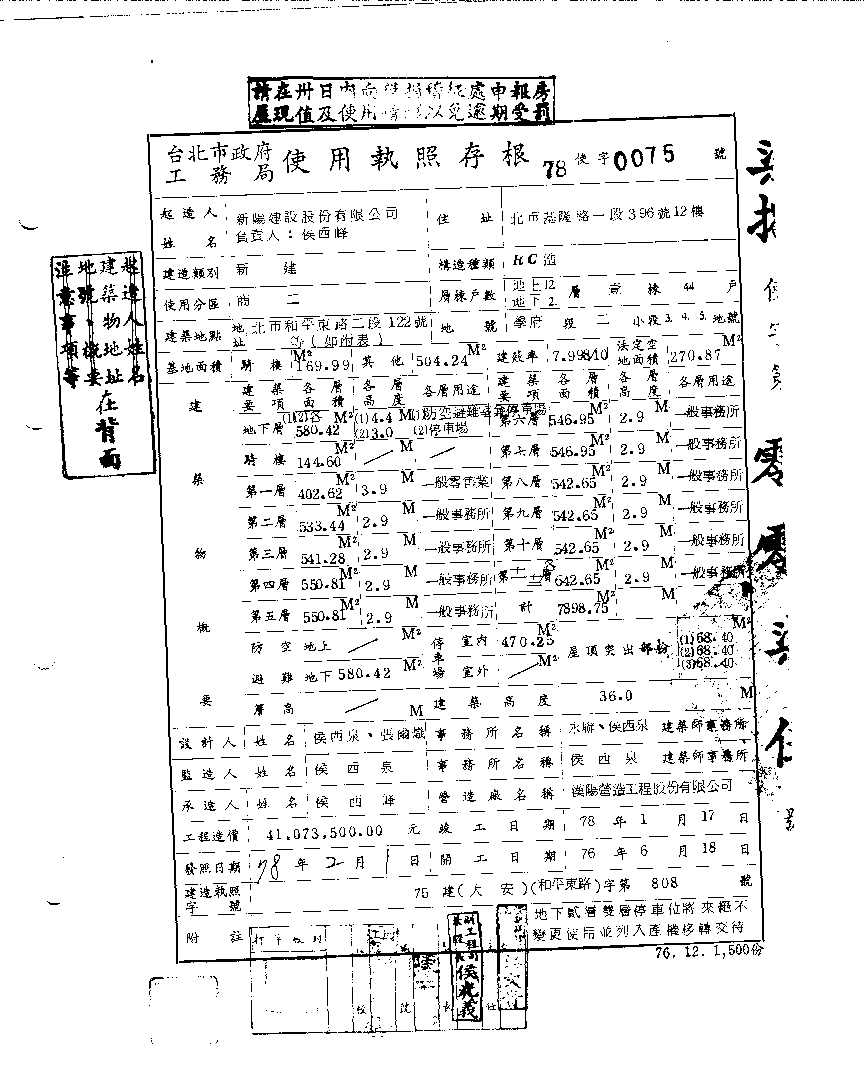 請在卅日內向 處申報房
屋現值及使用 以免逾期受罰
台北市政府
工務局
使用執照存根
78 使字0075 號
起造人姓名 新陽建設股份有限公司
負責人：侯西峰
住址 北市基隆路一段396號12樓
建造類別 新建
構造種類 RC造
使用分區 商二
層棟戶數 地上12 地下2 層 壹棟 44戶
建築地點 地址 北市和平東路二段122號
等（如附表）
地號 學府段二小段3.4.5.地號
基地面積 騎樓 169.99 M² 其他 504.24 M² 建蔽率 7.998/10 法定空地面積 270.87 M²
建築物概要
建築要項 各層面積 各層高度 各層用途 建築要項 各層面積 各層高度 各層用途
地下層 580.42 M² (1)4.4 (2)3.0 M (1)防空避難 停車場 (2)停車場
第六層 546.95 M² 2.9 M 一般事務所
騎樓 144.60 M² ／ M ／
第七層 546.95 M² 2.9 M 一般事務所
第一層 402.62 M² 3.9 M 一般零售業
第八層 542.65 M² 2.9 M 一般事務所
第二層 533.44 M² 2.9 M 一般事務所
第九層 542.65 M² 2.9 M 一般事務所
第三層 541.28 M² 2.9 M 一般事務所
第十層 542.65 M² 2.9 M 一般事務所
第四層 550.81 M² 2.9 M 一般事務所
642.65 M² 2.9 M 一般事務所
第五層 550.81 M² 2.9 M 一般事務所
計 7898.75 M²
防空避難 地上 ／ M²
地下 580.42 M²
層高 ／ M
停車場 室內 470.25 M²
室外 ／ M²
屋頂突出部份 (1)68.40 (2)68.40 (3)68.40 M²
建築高度 36.0 M
設計人 姓名 侯西泉、張爾 事務所名稱 永聯、侯西泉 建築師事務所
監造人 姓名 侯西泉 事務所名稱 侯西泉 建築師事務所
承造人 姓名 侯西峰 營造廠名稱 漢陽營造工程股份有限公司
工程造價 41,073,500.00 元 竣工日期 78年1月17日
發照日期 78年2月1日 開工日期 76年6月18日
建造執照字號 75建（大安）（和平東路）字第 808 號
附註
地下貳層雙層停車位將來絕不
變更使用並列入產權移轉交待
76.12.1,500份
起造人姓名
建築物地址
地號、概要
注意事項等
在背面
侯兆義
零
零